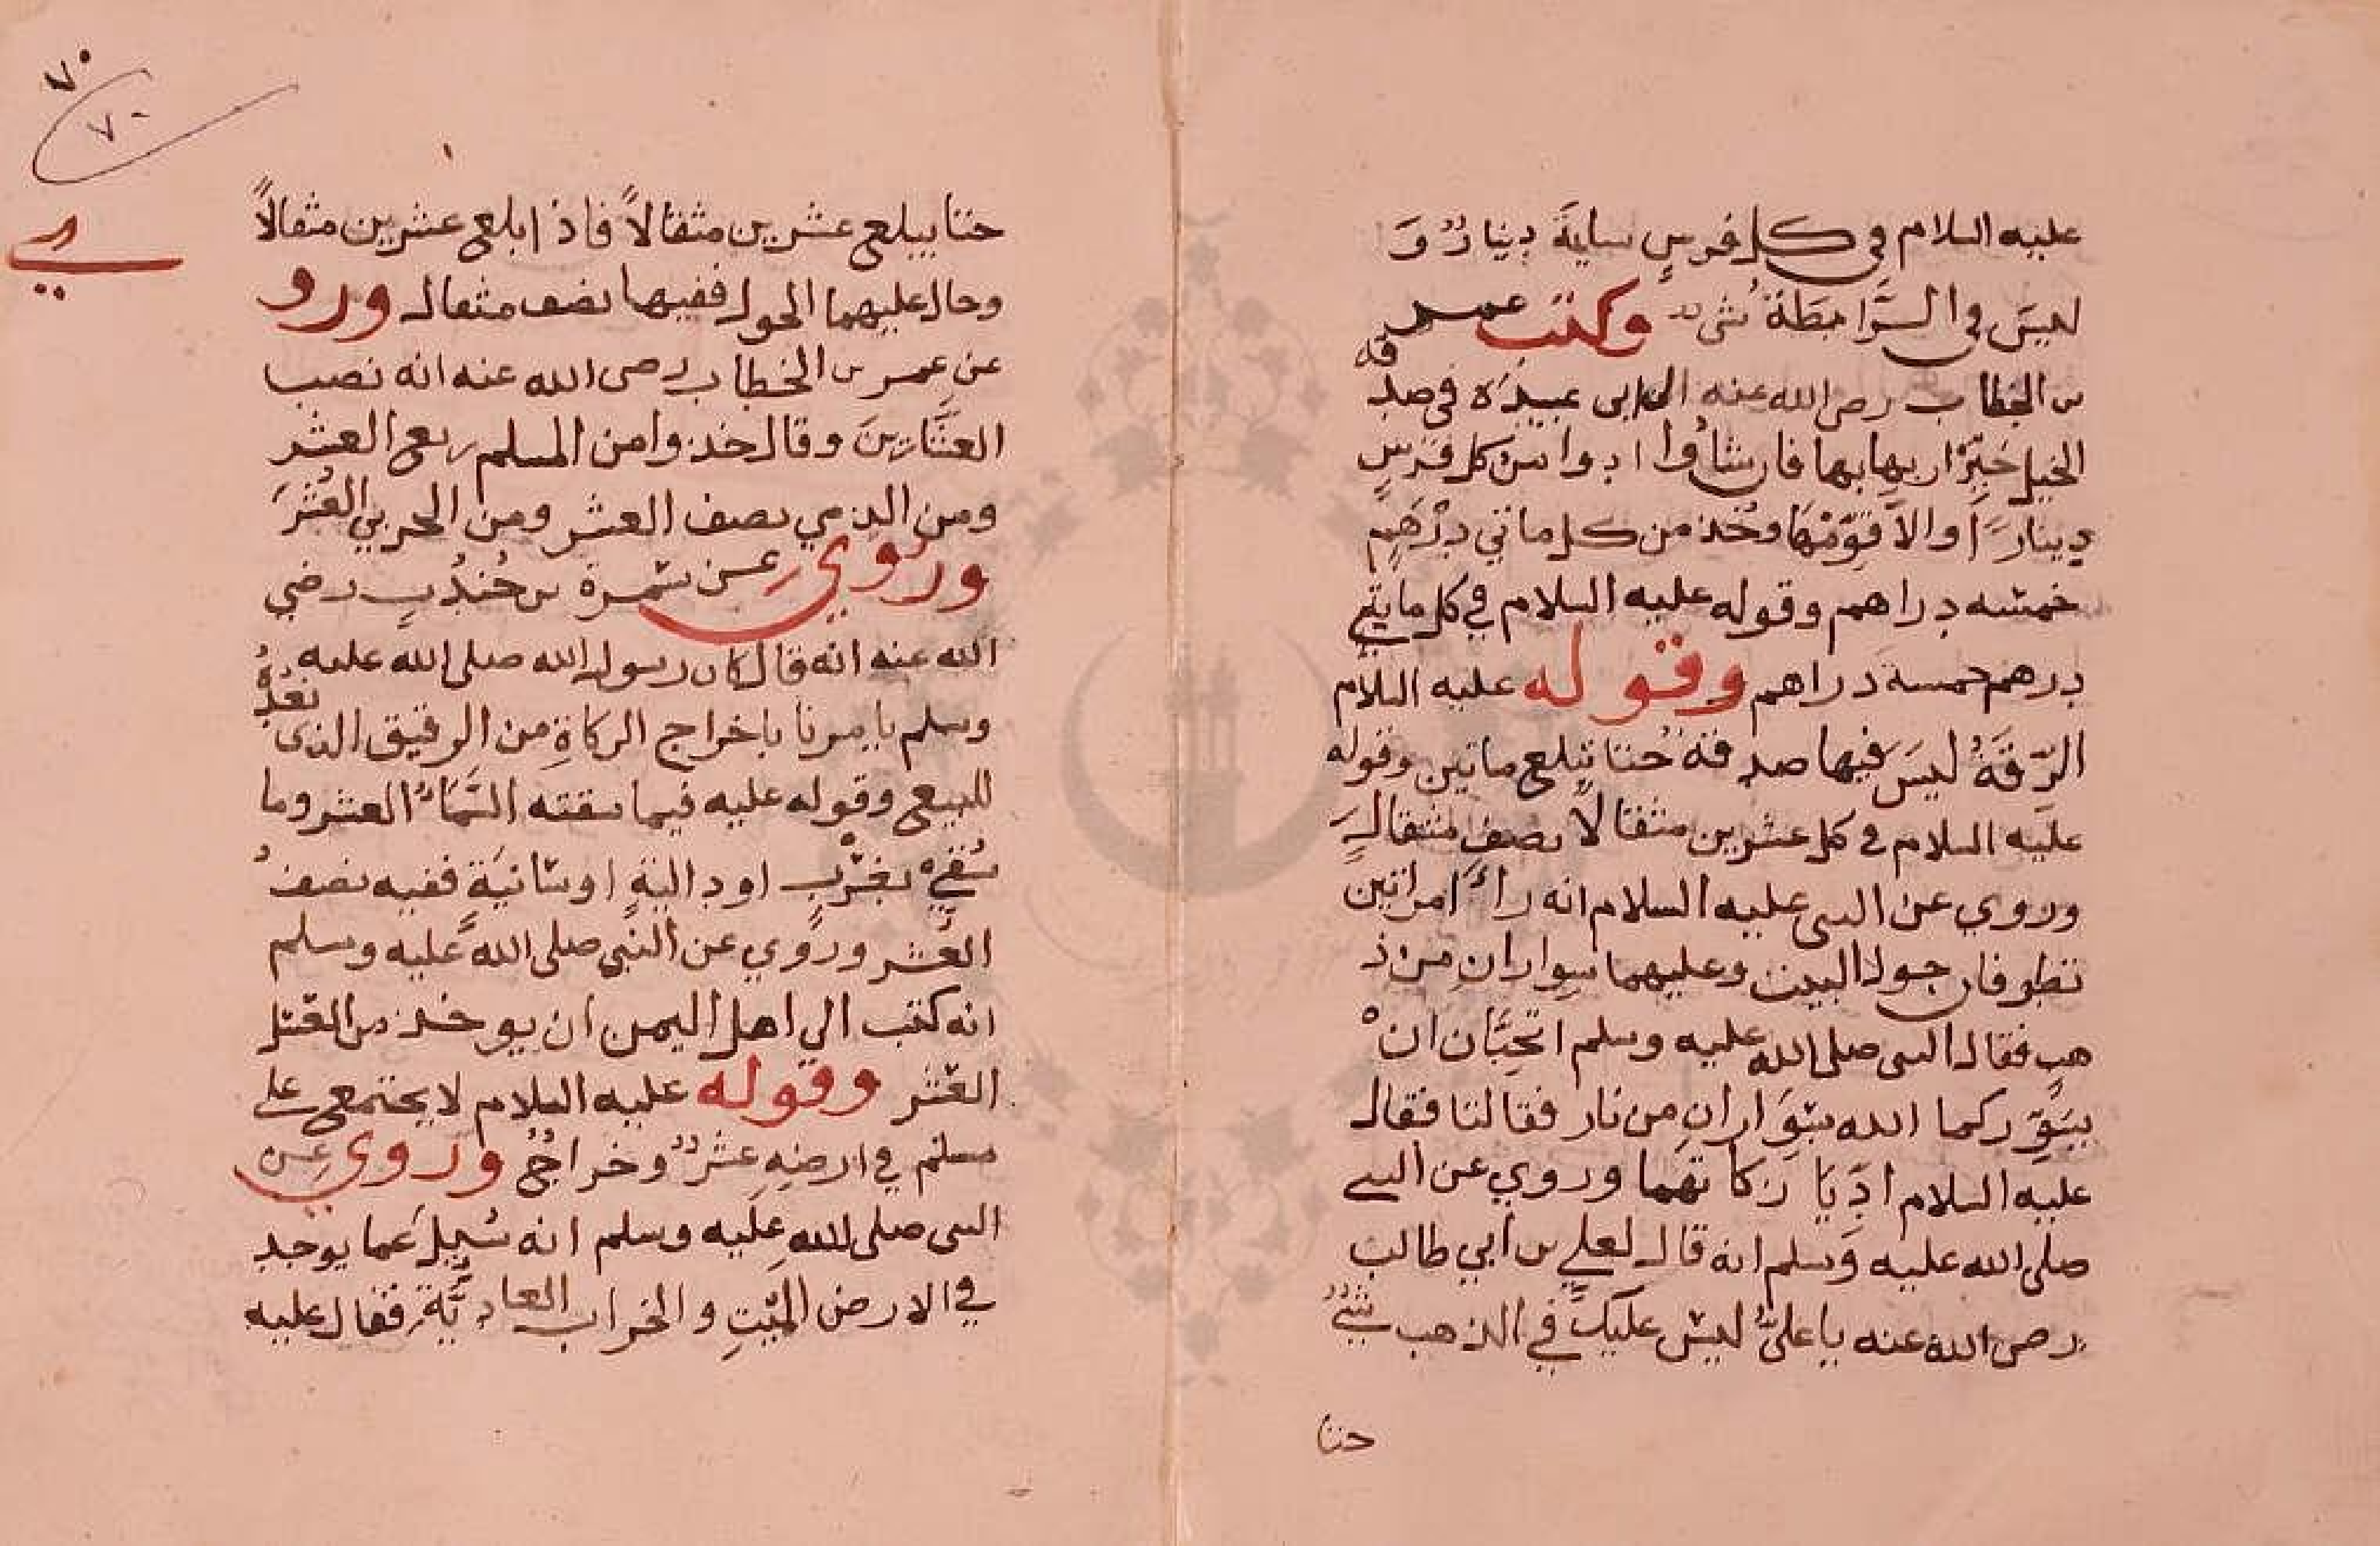 عليه السلام في كل فرسٍ سايمَة دينارٌ وَ
ليسَ في السَّرابطَة شيءٌ وكتب عمر
بن الخطاب رضي الله عنه الى ابي عبيدَة في صدقة
الخيل خَيِّرْ اربابها فان شاؤا ادوا من كل فرَسٍ
دينارًا والاَّ قوِّمْهَا وخُذ من كل مائتي دِرْهَمٍ
خمسه دراهم وقوله عليه السلام في كل مايتي
درهم خمسة دراهم وقوله عليه السلام
الرّقَةُ ليسَ فيها صدقة حَتا تبلع ماتين وقوله
عليه السلام في كل عشرين مثقالاً نصف مثقالٍ
وروي عن النبي عليه السلام انه راءَ امراتين
تطوفان حول البيت وعليهما سِواران من ذ
هبٍ فقال النبي صلى الله عليه وسلم اتحِبَّان انْ
يسَوِّركما الله سِوَارانِ من نار فقالتا فقال
عليه السلام ادِّيَا زكاتهُما وروي عن النبي
صلى الله عليه وَسلم انه قال لعلي بن ابي طالب
رضي الله عنه يا عليُّ ليسَ عليكَ في الذهب شيءٌ
حتا
٧٠
٧٠
حتا يبلع عشرين مثقالاً فاذا بلع عشرين مثقالاً
وحال عليهما الحول ففيها نصف مثقال ورو
ي
عن عمر بن الخطاب رضي الله عنه انه نصب
العشَّارينَ وقال خذوا من المسلم ربع العشرِ
ومن الذمي نصف العشر ومن الحربي العُشرَ
ورُوي عن سَمرة بن جُندُبٍ رضي
الله عنه انه قال كان رسول الله صلى الله عليه
وسلم يامرنا باخراج الزكاةِ من الرقيق الذى نعُدُّهُ
للبيع وقوله عليه فيما سقته السَّمَاءُ العشر وما
سُقيْ بغَرْبٍ او داليةٍ او سَانيَة ففيه نصفُ
العُشر ورُوي عن النبي صلى الله عليه وسلم
انه كتب الي اهل اليمن ان يوخذ من العسَل
العُشر وقوله عليه السلام لا يجتمع على
مسلم في ارضهِ عشرٌ وخراجٌ وروي عن
النبي صلى الله عليه وسلم انه سُيِلَ عَما يوجد
في الارض الميِّتِ والخراب العاديَّة فقال عليه